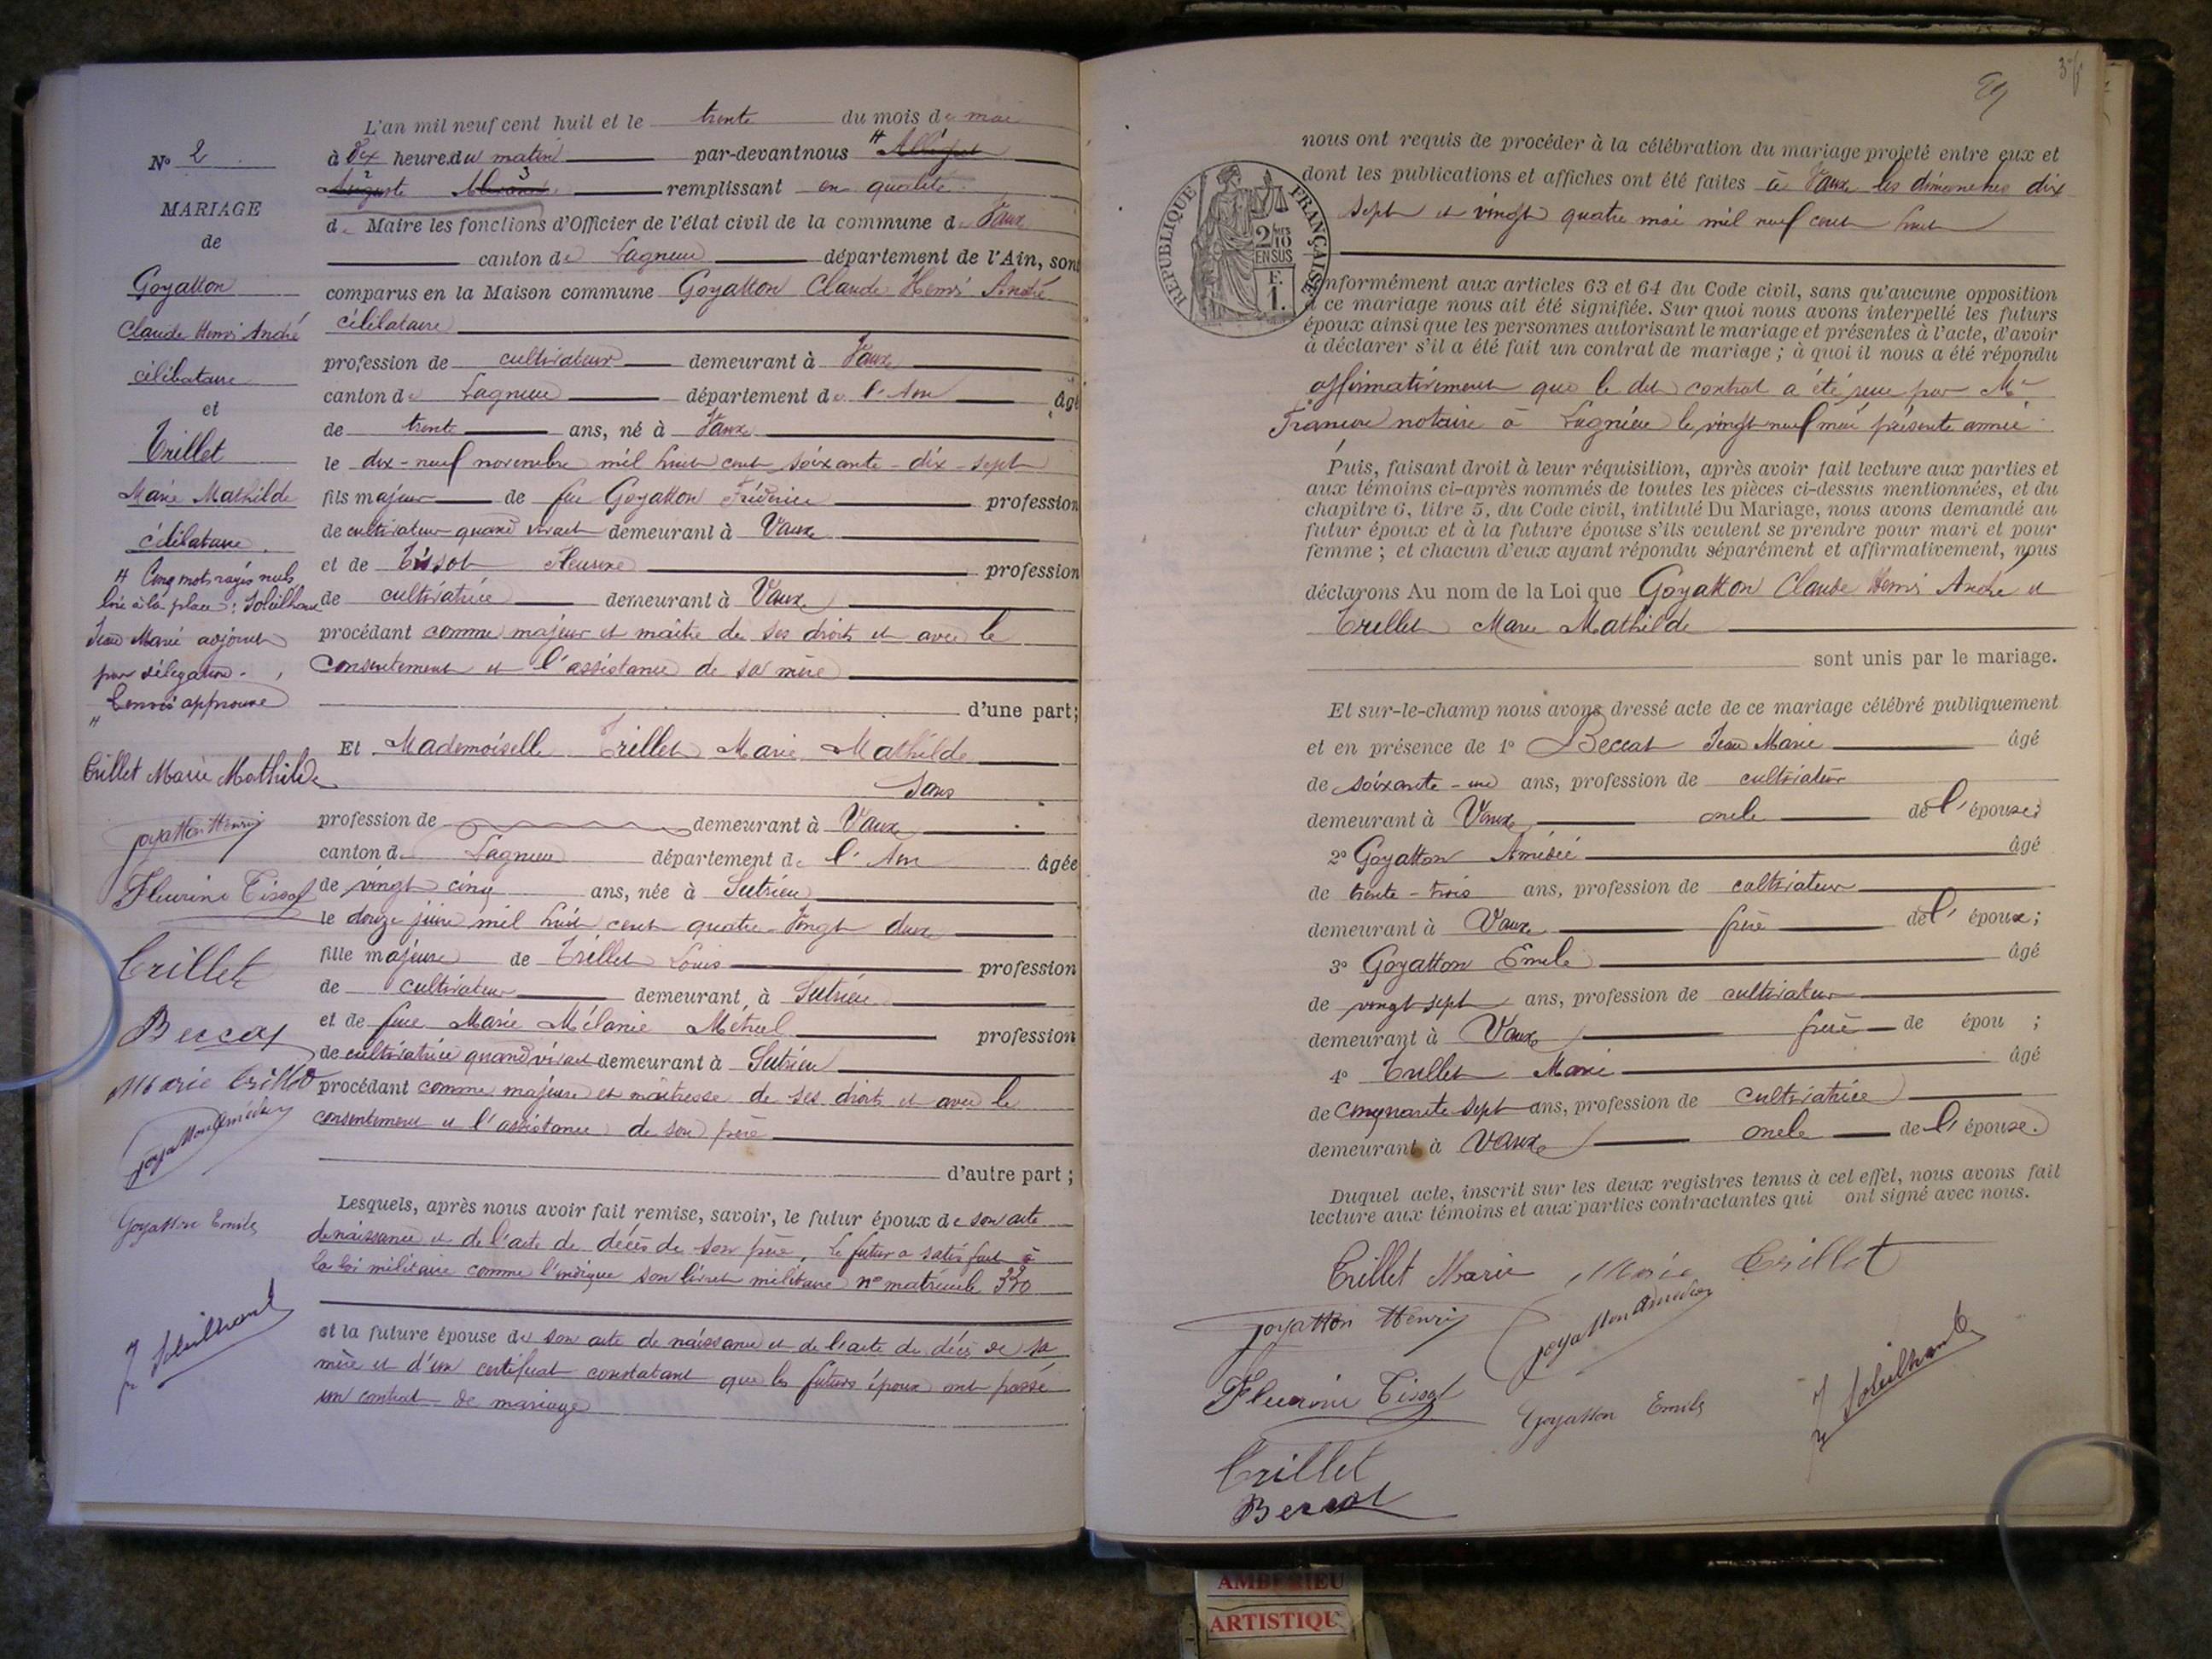 N° 2
MARIAGE
de
Goyatton
Claude Henri André
célibataire
et
Trillet
Marie Mathilde
célibataire
Cinq mots rayés nuls
lire à la place : Soleilhac
Jean Marie adjoint
par délégation.
Renvoi approuvé
Trillet Marie Mathilde
Goyatton Henri
Fleurine Tissot
Trillet
Beccat
Marie Trillet
Goyatton Amédée
Goyatton Emile
L'an mil neuf cent huit et le trente du mois de mai
à dix heures du matin par-devant nous
Auguste remplissant en qualité
de Maire les fonctions d'Officier de l'état civil de la commune de Vaux
canton de Lagnieu département de l'Ain, sont
comparus en la Maison commune Goyatton Claude Henri André
célibataire
profession de cultivateur demeurant à Vaux
canton de Lagnieu département de l'Ain âgé
de trente ans, né à Vaux
le dix-neuf novembre mil huit cent soixante-dix-sept
fils majeur de feu Goyatton Frédéric profession
de cultivateur quand vivait demeurant à Vaux
et de Tissot Fleurine profession
de cultivatrice demeurant à Vaux
procédant comme majeur et maître de ses droits et avec le
consentement et l'assistance de sa mère
d'une part;
Et Mademoiselle Trillet Marie Mathilde
sans
profession de demeurant à Vaux
canton de Lagnieu département de l'Ain âgée
de vingt cinq ans, née à Sutrieu
le douze juin mil huit cent quatre-vingt deux
fille majeure de Trillet Louis profession
de cultivateur demeurant à Sutrieu
et de feue Marie Mélanie profession
de cultivatrice quand vivait demeurant à Sutrieu
procédant comme majeure et maîtresse de ses droits et avec le
consentement et l'assistance de son père
d'autre part ;
Lesquels, après nous avoir fait remise, savoir, le futur époux de son acte
de naissance et de l'acte de décès de son père, le futur a satisfait à
la loi militaire comme l'indique son livret militaire n° matricule
et la future épouse de son acte de naissance et de l'acte de décès de sa
mère et d'un certificat constatant que les futurs époux ont passé
un contrat de mariage
nous ont requis de procéder à la célébration du mariage projeté entre eux et
dont les publications et affiches ont été faites à Vaux les dimanches dix
sept et vingt quatre mai mil neuf cent huit
REPUBLIQUE FRANÇAISE
2/10
EN SUS
F.
1.
conformément aux articles 63 et 64 du Code civil, sans qu'aucune opposition
à ce mariage nous ait été signifiée. Sur quoi nous avons interpellé les futurs
époux ainsi que les personnes autorisant le mariage et présentes à l'acte, d'avoir
à déclarer s'il a été fait un contrat de mariage ; à quoi il nous a été répondu
affirmativement que le dit contrat a été reçu par Me
notaire à Lagnieu le vingt-neuf mai présente année
Puis, faisant droit à leur réquisition, après avoir fait lecture aux parties et
aux témoins ci-après nommés de toutes les pièces ci-dessus mentionnées, et du
chapitre 6, titre 5, du Code civil, intitulé Du Mariage, nous avons demandé au
futur époux et à la future épouse s'ils veulent se prendre pour mari et pour
femme ; et chacun d'eux ayant répondu séparément et affirmativement, nous
déclarons Au nom de la Loi que Goyatton Claude Henri André et
Trillet Marie Mathilde
sont unis par le mariage.
Et sur-le-champ nous avons dressé acte de ce mariage célébré publiquement
et en présence de 1° Beccat Jean Marie âgé
de soixante-un ans, profession de cultivateur
demeurant à Vaux oncle de l'épouse;
2° Goyatton Amédée âgé
de trente-trois ans, profession de cultivateur
demeurant à Vaux frère de l'époux;
3° Goyatton Emile âgé
de vingt-sept ans, profession de cultivateur
demeurant à Vaux frère de épou ;
4° Trillet Marie âgé
de cinquante sept ans, profession de cultivatrice
demeurant à Vaux oncle de l'épouse.
Duquel acte, inscrit sur les deux registres tenus à cet effet, nous avons fait
lecture aux témoins et aux parties contractantes qui ont signé avec nous.
Trillet Marie Marie Trillet
Goyatton Henri Goyatton Amédée
Fleurine Tissot Goyatton Emile
Trillet
Beccat
AMBERIEU
ARTISTIQU